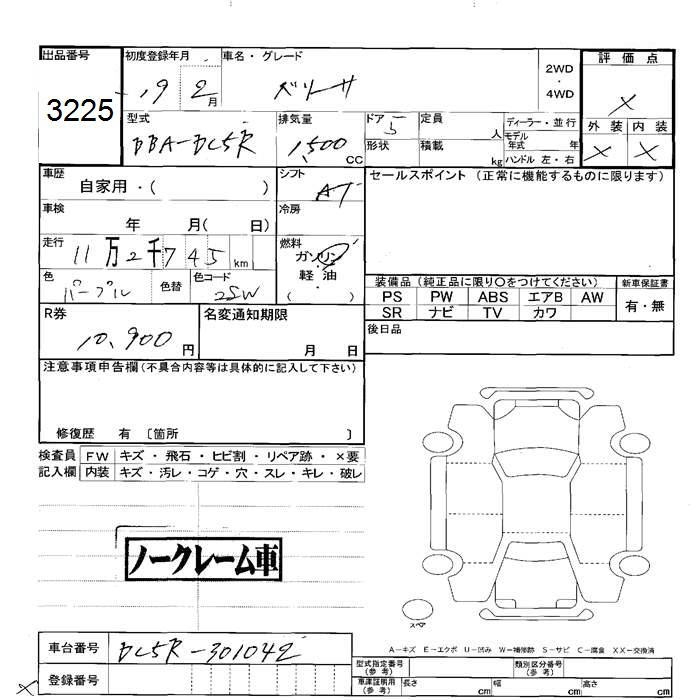 出品番号 初度登録年月 車名・グレード 2WD・4WD 評価点
3225 19 2月 ベリーサ ×
型式 排気量 ドア 定員 ディーラー・並行 外装 内装
DBA-DC5R 1,500CC 5 人 モデル年式 年 × ×
形状 積載 kg ハンドル 左・右
車歴 シフト セールスポイント (正常に機能するものに限ります)
自家用・( ) AT
車検 冷房
年 月( 日)
走行 燃料
11万2千745km ガソリン・軽油
( )
色 色替 色コード 装備品 (純正品に限り〇をつけてください) 新車保証書
パープル 2SW PS PW ABS エアB AW 有・無
SR ナビ TV カワ
R券 名変通知期限 後日品
10,900円 月 日
注意事項申告欄(不具合内容等は具体的に記入して下さい)
修復歴 有 〔箇所 〕
検査員 FW キズ・飛石・ヒビ割・リペア跡・×要
記入欄 内装 キズ・汚レ・コゲ・穴・スレ・キレ・破レ
ノークレーム車
スペア
A-キズ E-エクボ U-凹み W-補修跡 S-サビ C-腐食 XX-交換済
車台番号 DC5R-301042
型式指定番号(参考) 類別区分番号(参考)
登録番号
車庫証明用(参考) 長さ cm 幅 cm 高さ cm
×